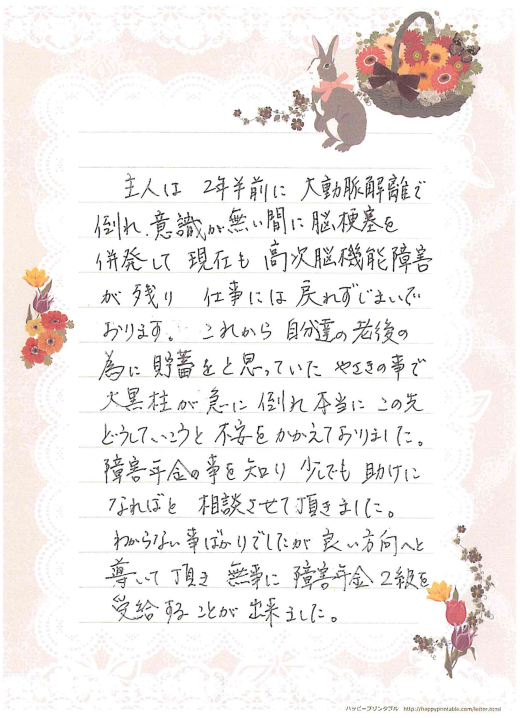 主人は 2年半前に 大動脈解離で
倒れ、意識が無い間に脳梗塞を
併発して 現在も 高次脳機能障害
が 残り 仕事には 戻れずじまいで
おります。 これから 自分達の老後の
為に貯蓄をと思っていた やさきの事で
大黒柱が 急に 倒れ本当に この先
どうしていこうと 不安をかかえておりました。
障害年金の事を知り 少しでも 助けに
なればと 相談させて頂きました。
わからない事ばかりでしたが 良い方向へと
導いて 頂き 無事に 障害年金 2級を
受給することが 出来ました。
ハッピープリンタブル http://happyprintable.com/letter.html